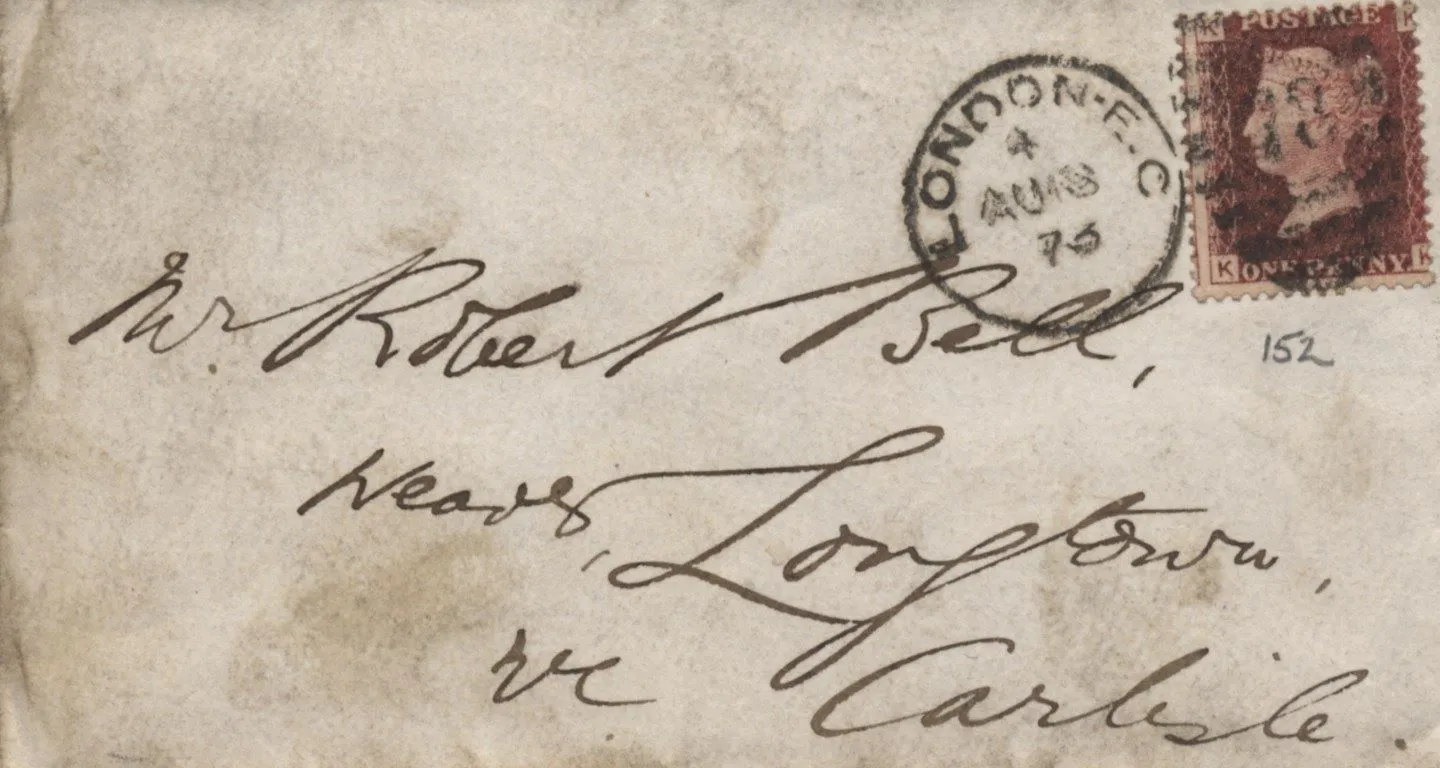 K POSTAGE K
LONDON·E.C
4
AU18
75
K ONE PENNY K
152
Mr. Robert Bell,
Weaver, Longtown,
Carlisle.